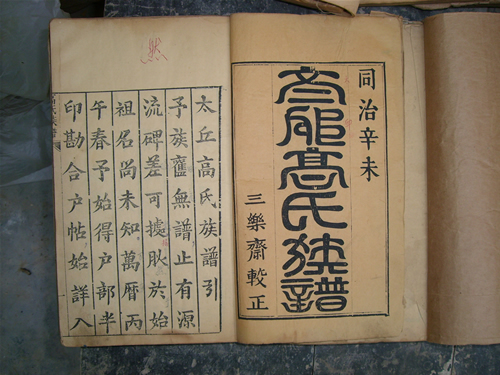 同治辛未
高氏族譜
三樂齋較正
太丘高氏族譜引
予族舊無譜止有源
流碑差可據耿於始
祖名尚未知萬曆丙
午春予始得戶部半
印勘合戶帖始詳入